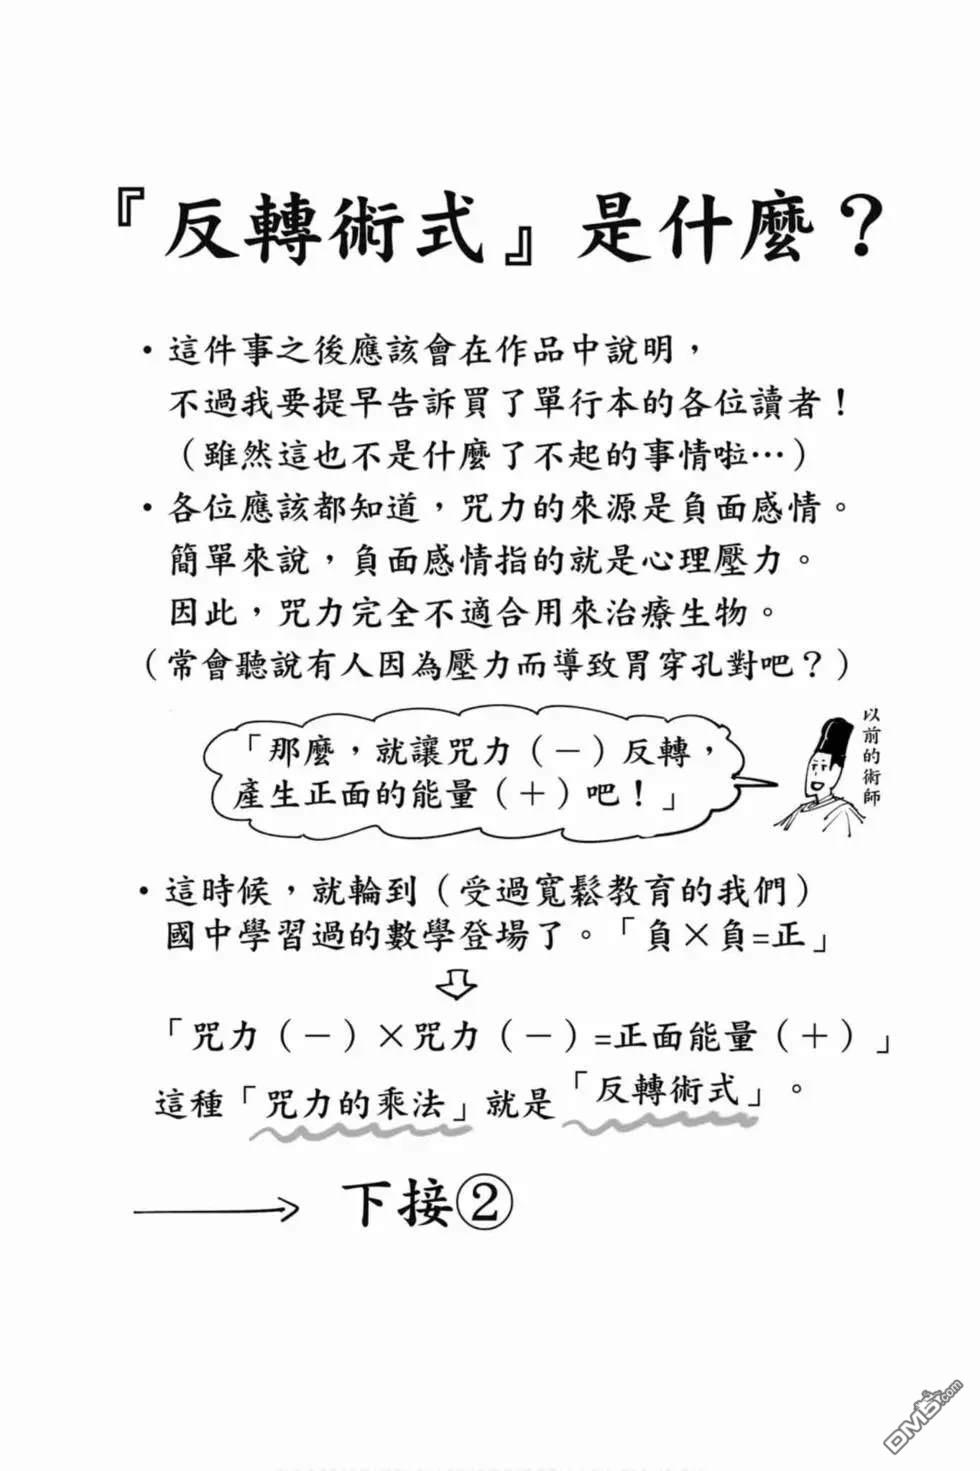 『反轉術式』是什麼？
・這件事之後應該會在作品中說明，
不過我要提早告訴買了單行本的各位讀者！
（雖然這也不是什麼了不起的事情啦…）
・各位應該都知道，咒力的來源是負面感情。
簡單來說，負面感情指的就是心理壓力。
因此，咒力完全不適合用來治療生物。
（常會聽說有人因為壓力而導致胃穿孔對吧？）
「那麼，就讓咒力（－）反轉，
產生正面的能量（＋）吧！」
以前的術師
・這時候，就輪到（受過寬鬆教育的我們）
國中學習過的數學登場了。「負×負=正」
「咒力（－）×咒力（－）=正面能量（＋）」
這種「咒力的乘法」就是「反轉術式」。
下接②
DM5.com